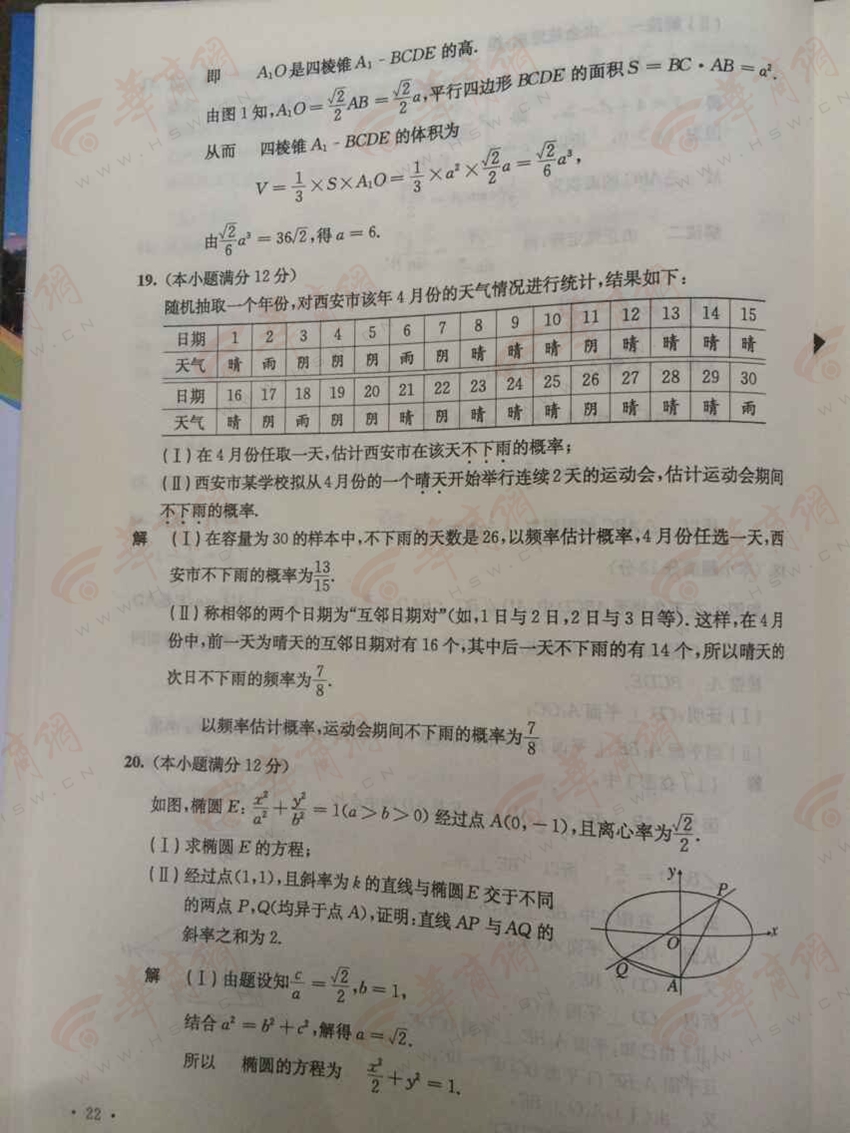 即 A₁O是四棱锥 A₁ - BCDE 的高.
由图 1 知,A₁O = √2/2 AB = √2/2 a,平行四边形 BCDE 的面积 S = BC · AB = a².
从而 四棱锥 A₁ - BCDE 的体积为
V = 1/3 × S × A₁O = 1/3 × a² × √2/2 a = √2/6 a³,
由 √2/6 a³ = 36√2,得 a = 6.
19. (本小题满分 12 分)
随机抽取一个年份,对西安市该年 4 月份的天气情况进行统计,结果如下:
日期 1 2 3 4 5 6 7 8 9 10 11 12 13 14 15
天气 晴 雨 阴 阴 阴 雨 阴 晴 晴 晴 阴 晴 晴 晴 晴
日期 16 17 18 19 20 21 22 23 24 25 26 27 28 29 30
天气 晴 阴 雨 阴 阴 晴 阴 晴 晴 晴 阴 晴 晴 晴 雨
(Ⅰ) 在 4 月份任取一天,估计西安市在该天不下雨的概率;
(Ⅱ) 西安市某学校拟从 4 月份的一个晴天开始举行连续 2 天的运动会,估计运动会期间
不下雨的概率.
解 (Ⅰ) 在容量为 30 的样本中,不下雨的天数是 26,以频率估计概率,4 月份任选一天,西
安市不下雨的概率为 13/15.
(Ⅱ) 称相邻的两个日期为“互邻日期对”(如,1 日与 2 日,2 日与 3 日等). 这样,在 4 月
份中,前一天为晴天的互邻日期对有 16 个,其中后一天不下雨的有 14 个,所以晴天的
次日不下雨的频率为 7/8.
以频率估计概率,运动会期间不下雨的概率为 7/8
20. (本小题满分 12 分)
如图,椭圆 E: x²/a² + y²/b² = 1(a > b > 0) 经过点 A(0, - 1),且离心率为 √2/2.
(Ⅰ) 求椭圆 E 的方程;
(Ⅱ) 经过点(1,1),且斜率为 k 的直线与椭圆 E 交于不同
的两点 P,Q(均异于点 A),证明:直线 AP 与 AQ 的
斜率之和为 2.
y
P
O
x
Q
A
解 (Ⅰ) 由题设知 c/a = √2/2,b = 1,
结合 a² = b² + c²,解得 a = √2.
所以 椭圆的方程为 x²/2 + y² = 1.
· 22 ·
华商网
WWW.HSW.CN